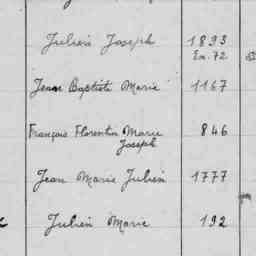 Julien Joseph 1893
Ex. 72
Jean Baptiste Marie 1167
François Florentin Marie 846
Joseph
Jean Marie Julien 1777
Julien Marie 192